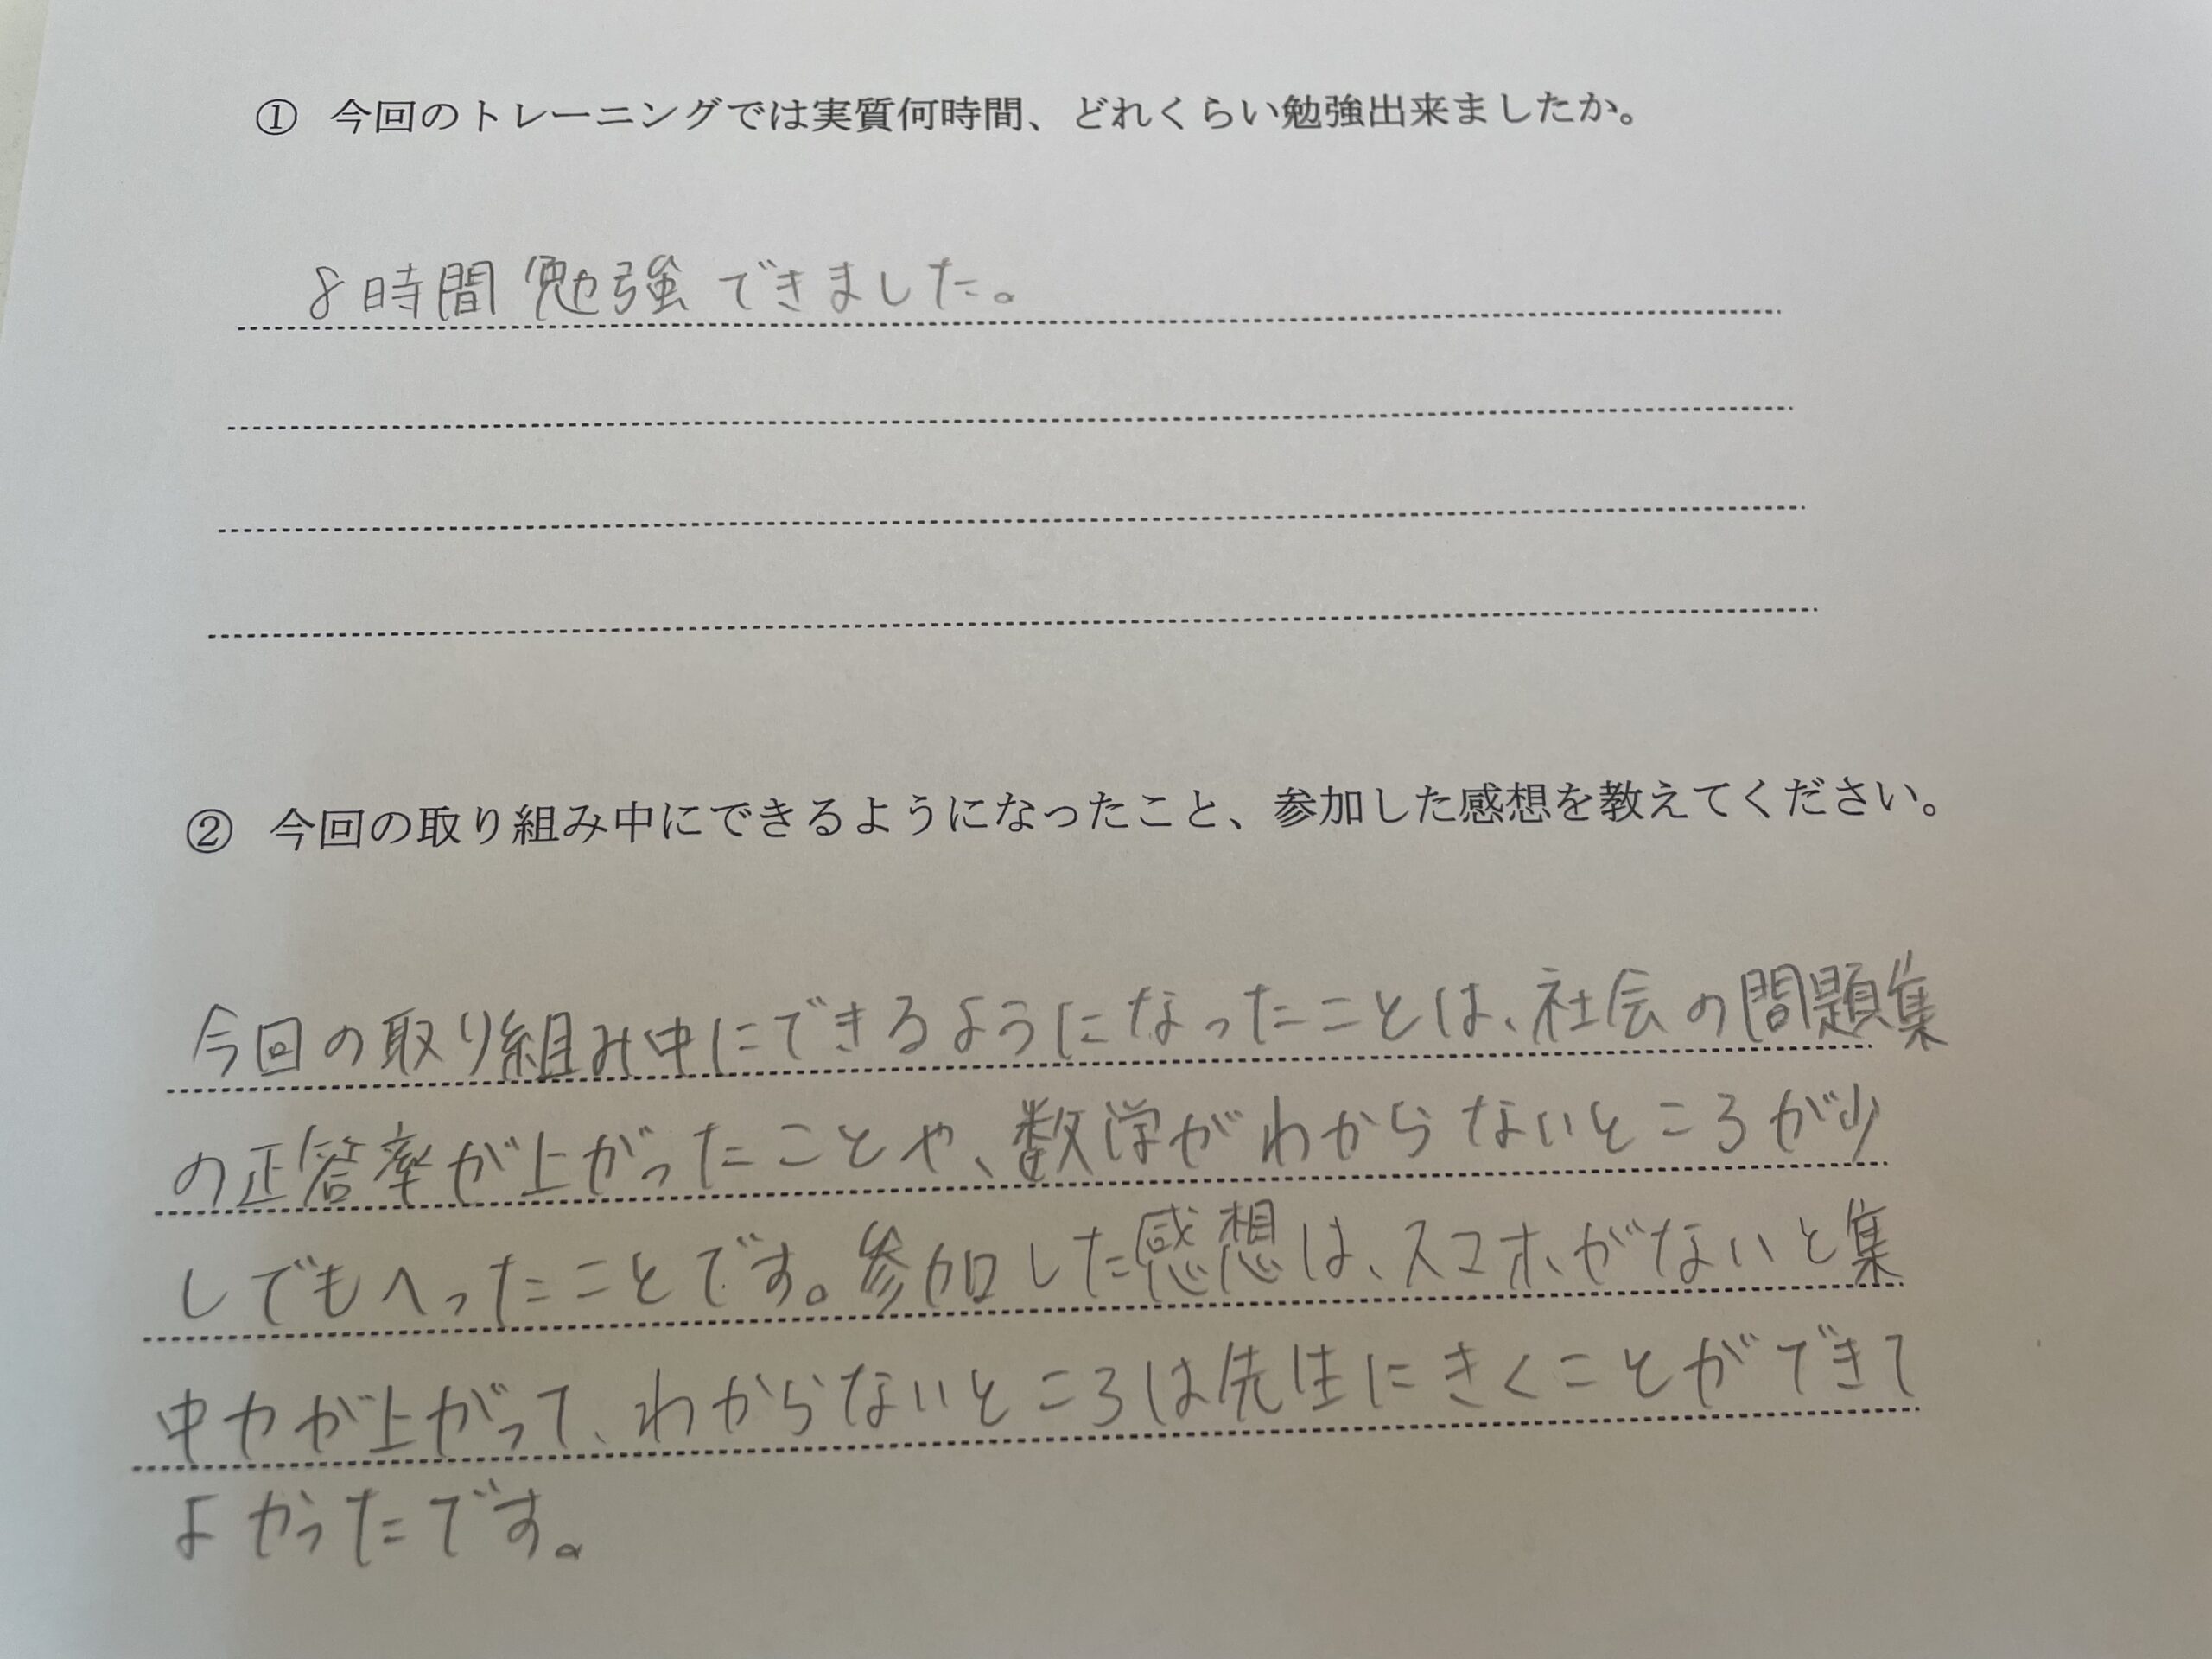 ① 今回のトレーニングでは実質何時間、どれくらい勉強出来ましたか。
8時間勉強できました。
② 今回の取り組み中にできるようになったこと、参加した感想を教えてください。
今回の取り組み中にできるようになったことは、社会の問題集
の正答率が上がったことや、数学がわからないところが少
しでもへったことです。参加した感想は、スマホがないと集
中力が上がって、わからないところは先生にきくことができて
よかったです。